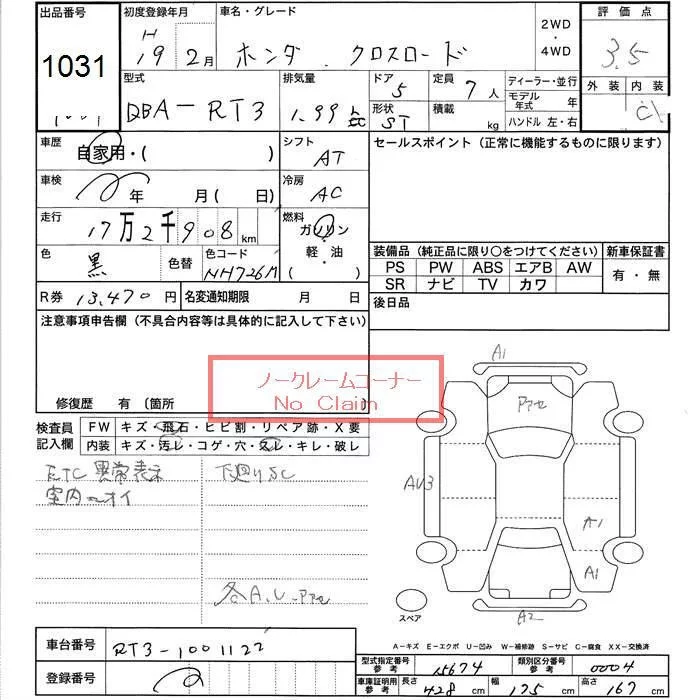 出品番号 初度登録年月 車名・グレード 2WD・4WD 評価点
1031 H19 2月 ホンダ クロスロード 3.5
型式 排気量 ドア 定員 ディーラー・並行 外装 内装
DBA-RT3 1.99 5 7人 モデル年式 年 C
形状 ST 積載 kg ハンドル 左・右
車歴 自家用・( ) シフト AT セールスポイント (正常に機能するものに限ります)
車検 年 月 ( 日) 冷房 AC
走行 17万2千908km 燃料 ガソリン・軽油 ( )
色 黒 色替 色コード NH726M
装備品 (純正品に限り○をつけてください) 新車保証書
PS PW ABS エアB AW 有・無
SR ナビ TV カワ
R券 13,470円 名変通知期限 月 日 後日品
注意事項申告欄 (不具合内容等は具体的に記入して下さい)
ノークレームコーナー
No Claim
修復歴 有 〔箇所
検査員記入欄 FW キズ・飛石・ヒビ割・リペア跡・X要
内装 キズ・汚レ・コゲ・穴・スレ・キレ・破レ
ETC異常表示 下廻りSC
室内ニオイ
各A.U
A1
AU3
A1
A1
A2
スペア
A-キズ E-エクボ U-凹み W-補修跡 S-サビ C-腐食 XX-交換済
車台番号 RT3-1001122
登録番号
型式指定番号 参考 15674 類別区分番号 参考 0004
車庫証明用 参考 長さ 428cm 幅 175cm 高さ 167cm